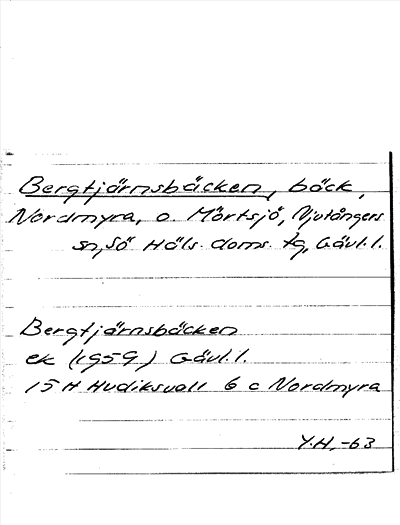 Bergtjärnsbäcken, bäck,
Nordmyra, o. Mörtsjö, Njutångers
sn, Sö Häls. doms. tg, Gävl.l.
Bergtjärnsbäcken
ek (1959) Gävl.l.
15 H Hudiksvall 6 c Nordmyra
Y.H. -63